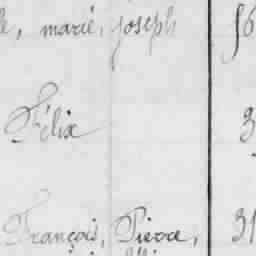 marie, joseph 56
Félix 3
François, Pierre, 31